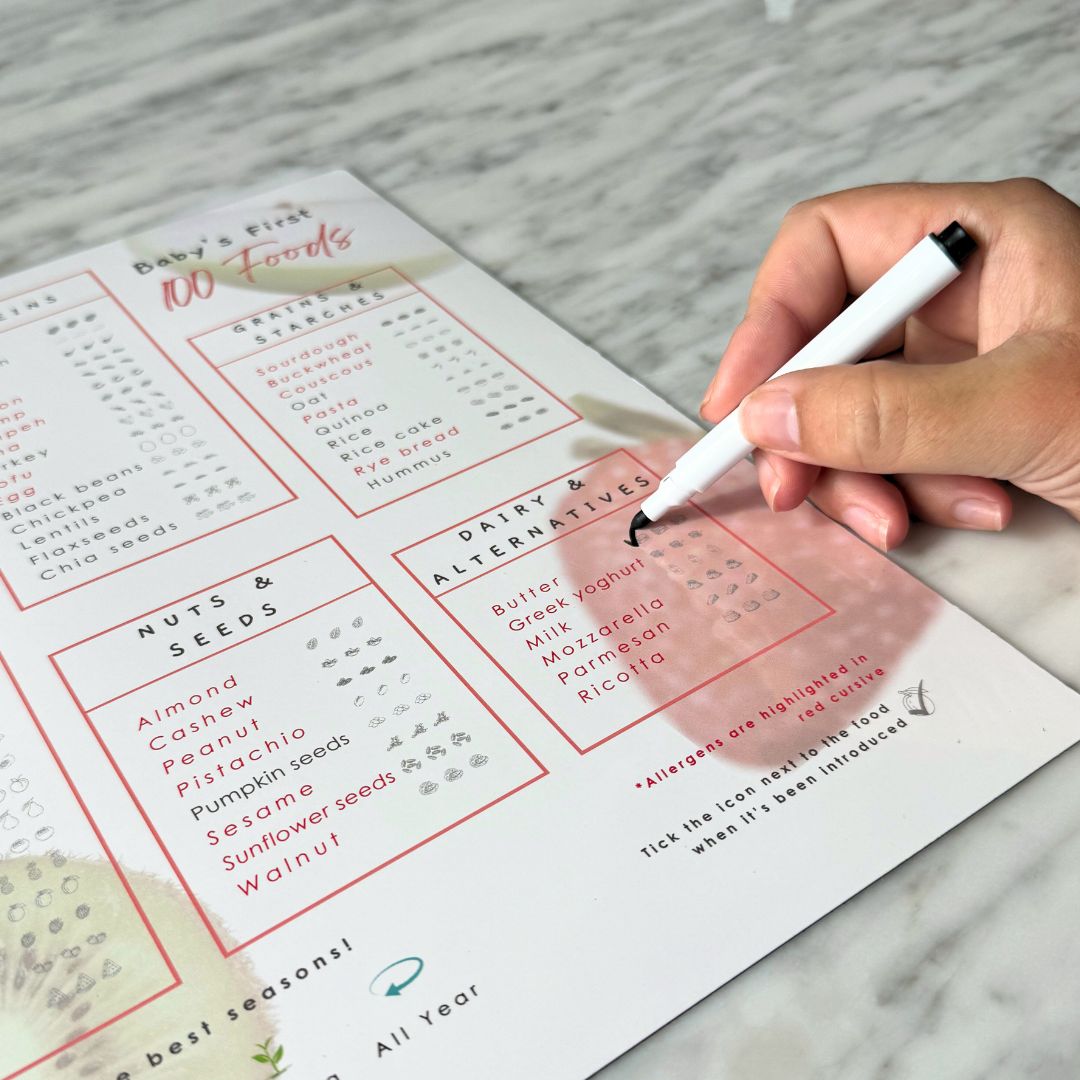 Baby's First
100 Foods
GRAINS &
STARCHES
Sourdough
Buckwheat
Couscous
Oat
Pasta
Quinoa
Rice
Rice cake
Rye bread
Hummus
Black beans
Chickpea
Lentils
Flaxseeds
Chia seeds
DAIRY &
ALTERNATIVES
Butter
Greek yoghurt
Milk
Mozzarella
Parmesan
Ricotta
NUTS &
SEEDS
Almond
Cashew
Peanut
Pistachio
Pumpkin seeds
Sesame
Sunflower seeds
Walnut
*Allergens are highlighted in
red cursive
Tick the icon next to the food
when it's been introduced
best seasons!
All Year